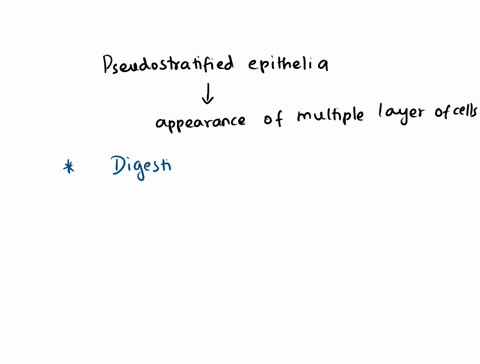 Pseudostratified epithelia
↓
appearance of multiple layer of cells
* Digesti